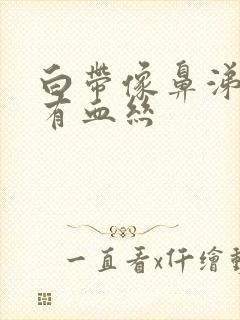 白帶像鼻涕
有血絲
一直看x仟繪動